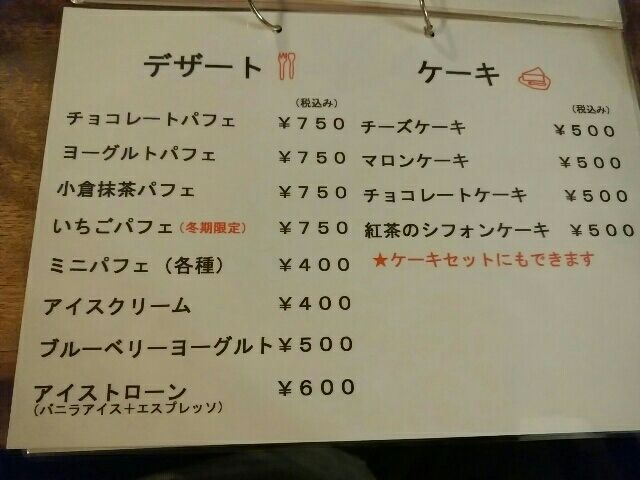 デザート
(税込み)
チョコレートパフェ ￥７５０
ヨーグルトパフェ ￥７５０
小倉抹茶パフェ ￥７５０
いちごパフェ(冬期限定) ￥７５０
ミニパフェ（各種） ￥４００
アイスクリーム ￥４００
ブルーベリーヨーグルト ￥５００
アイストローン ￥６００
(バニラアイス＋エスプレッソ)
ケーキ
(税込み)
チーズケーキ ￥５００
マロンケーキ ￥５００
チョコレートケーキ ￥５００
紅茶のシフォンケーキ ￥５００
★ケーキセットにもできます